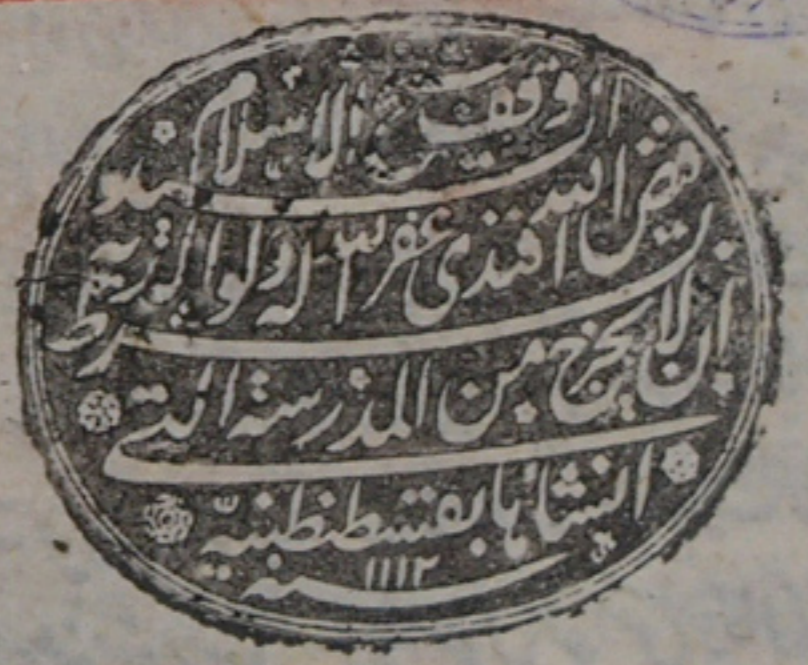 وقف شيخ الاسلام السيد
فيض الله افندى غفر الله له ولوالديه بشرط
ان لا يخرج من المدرسة التى
انشاها بقسطنطنيّة
سنة ١١١٢